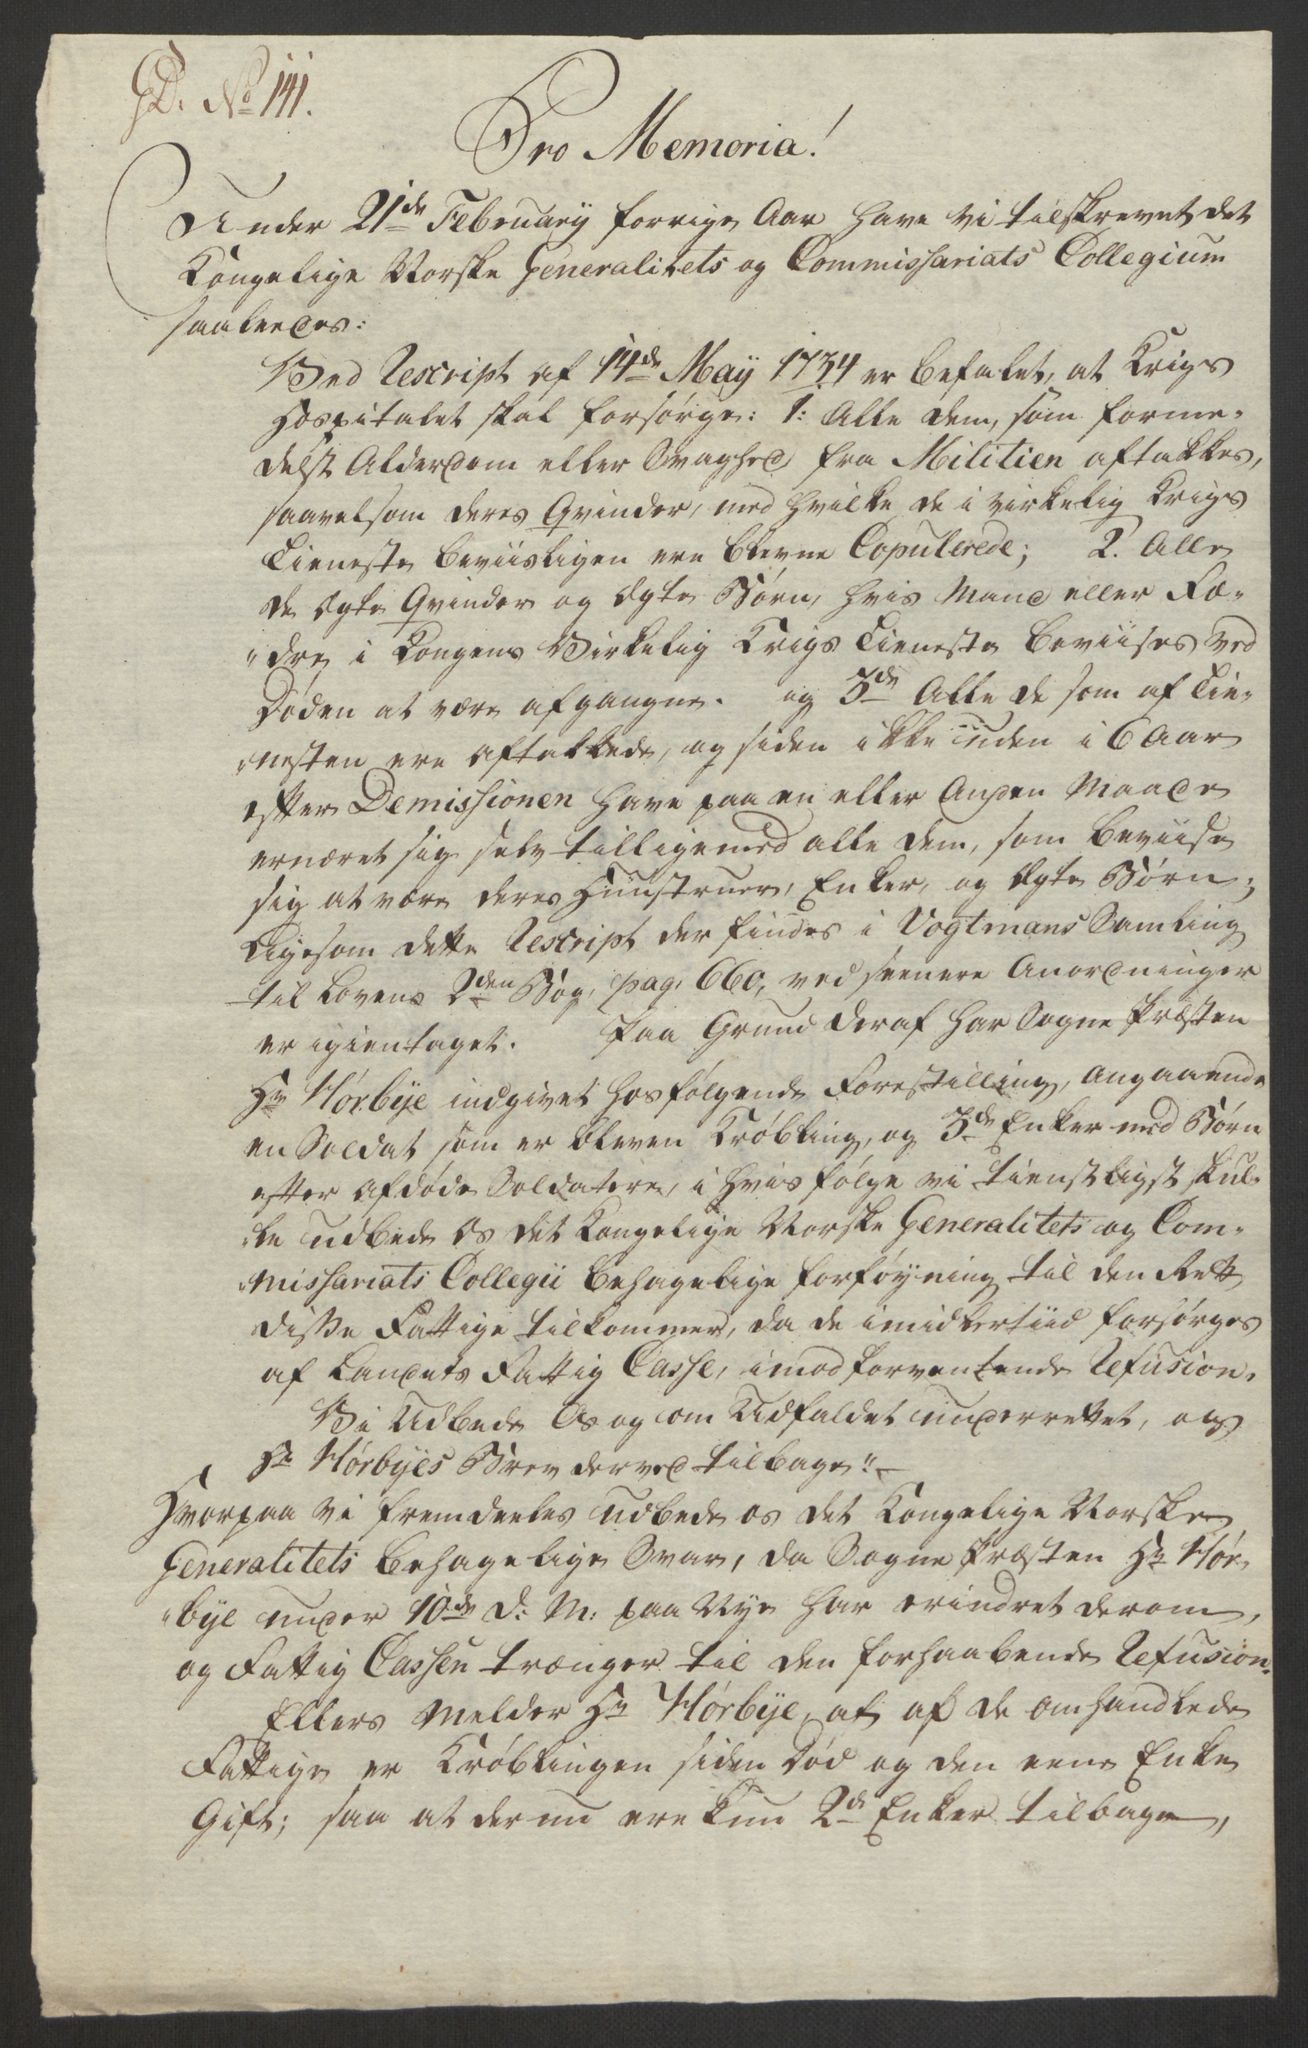 GD. No 141.
Pro Memoria!
Under 21de February forrige Aar have vi tilskrevet det
Kongelige Norske Generalitets og Commissariats Collegium
saaledes:
Ved Rescript af 14de May 1734 er befalet, at Krigs
Hospitalet skal forsørge: 1: Alle dem, som forme-
delst Alderdom eller Svaghed, fra Militien aftakkes,
saavelsom deres Qvinder, med hvilke de i virkelig Krigs
Tieneste beviisligen ere blevne Copulerede; 2. Alle
de Ægte Qvinder og Ægte Børn, hvis Mand eller Fæ-
"dre i Kongens Virkelig Krigs Tieneste beviises ved
Døden at være afgangne. og 3de Alle de som af Tie-
"nesten ere aftakkede, og siden ikke uden i 6 Aar
efter Demissionen have paa en eller Anden Maade
ernæret sig selv tilligemed alle dem, som beviise
sig at være deres Hustruer, Enker, og Ægte Børn;
Ligesom dette Rescript der findes i Vogtmans Samling
til Lovens 2den Bog, pag. 660, ved seenere Anordninger
er igientaget. Paa Grund deraf har Sogne Præsten
Hr Hørbÿe indgivet hosfølgende Forestilling, angaaende
en Soldat som er bleven Krøbling, og 3de Enker med Børn
efter afdøde Soldatere, i hvis følge vi tienstligst skul-
"le udbede os det Kongelige Norske Generalitets og Com-
"missariats Collegii behagelige forføyning til den Rett
disse Fattige tilkommer, da de imidlertiid forsørges
af Landets Fattig Casse, imod forventende Refusion.
Vi Udbede Os og om Udfaldet underrettet, og
Hr Hørbÿes Brev derved tilbage".
Hvorpaa vi fremdeeles udbede os det Kongelige Norske
Generalitets behagelige Svar, da Sogne Præsten Hr Hør-
"bÿe under 10de d: M: paa Nye har erindret derom,
og Fattig Cassen trænger til den forhaabende Refusion.
Ellers melder Hr Hørbÿe, at af de omhandlede
Fattige er Krøblingen siden død og den eene Enke
Gift; saa at der nu ere kun 2de Enker tilbage,